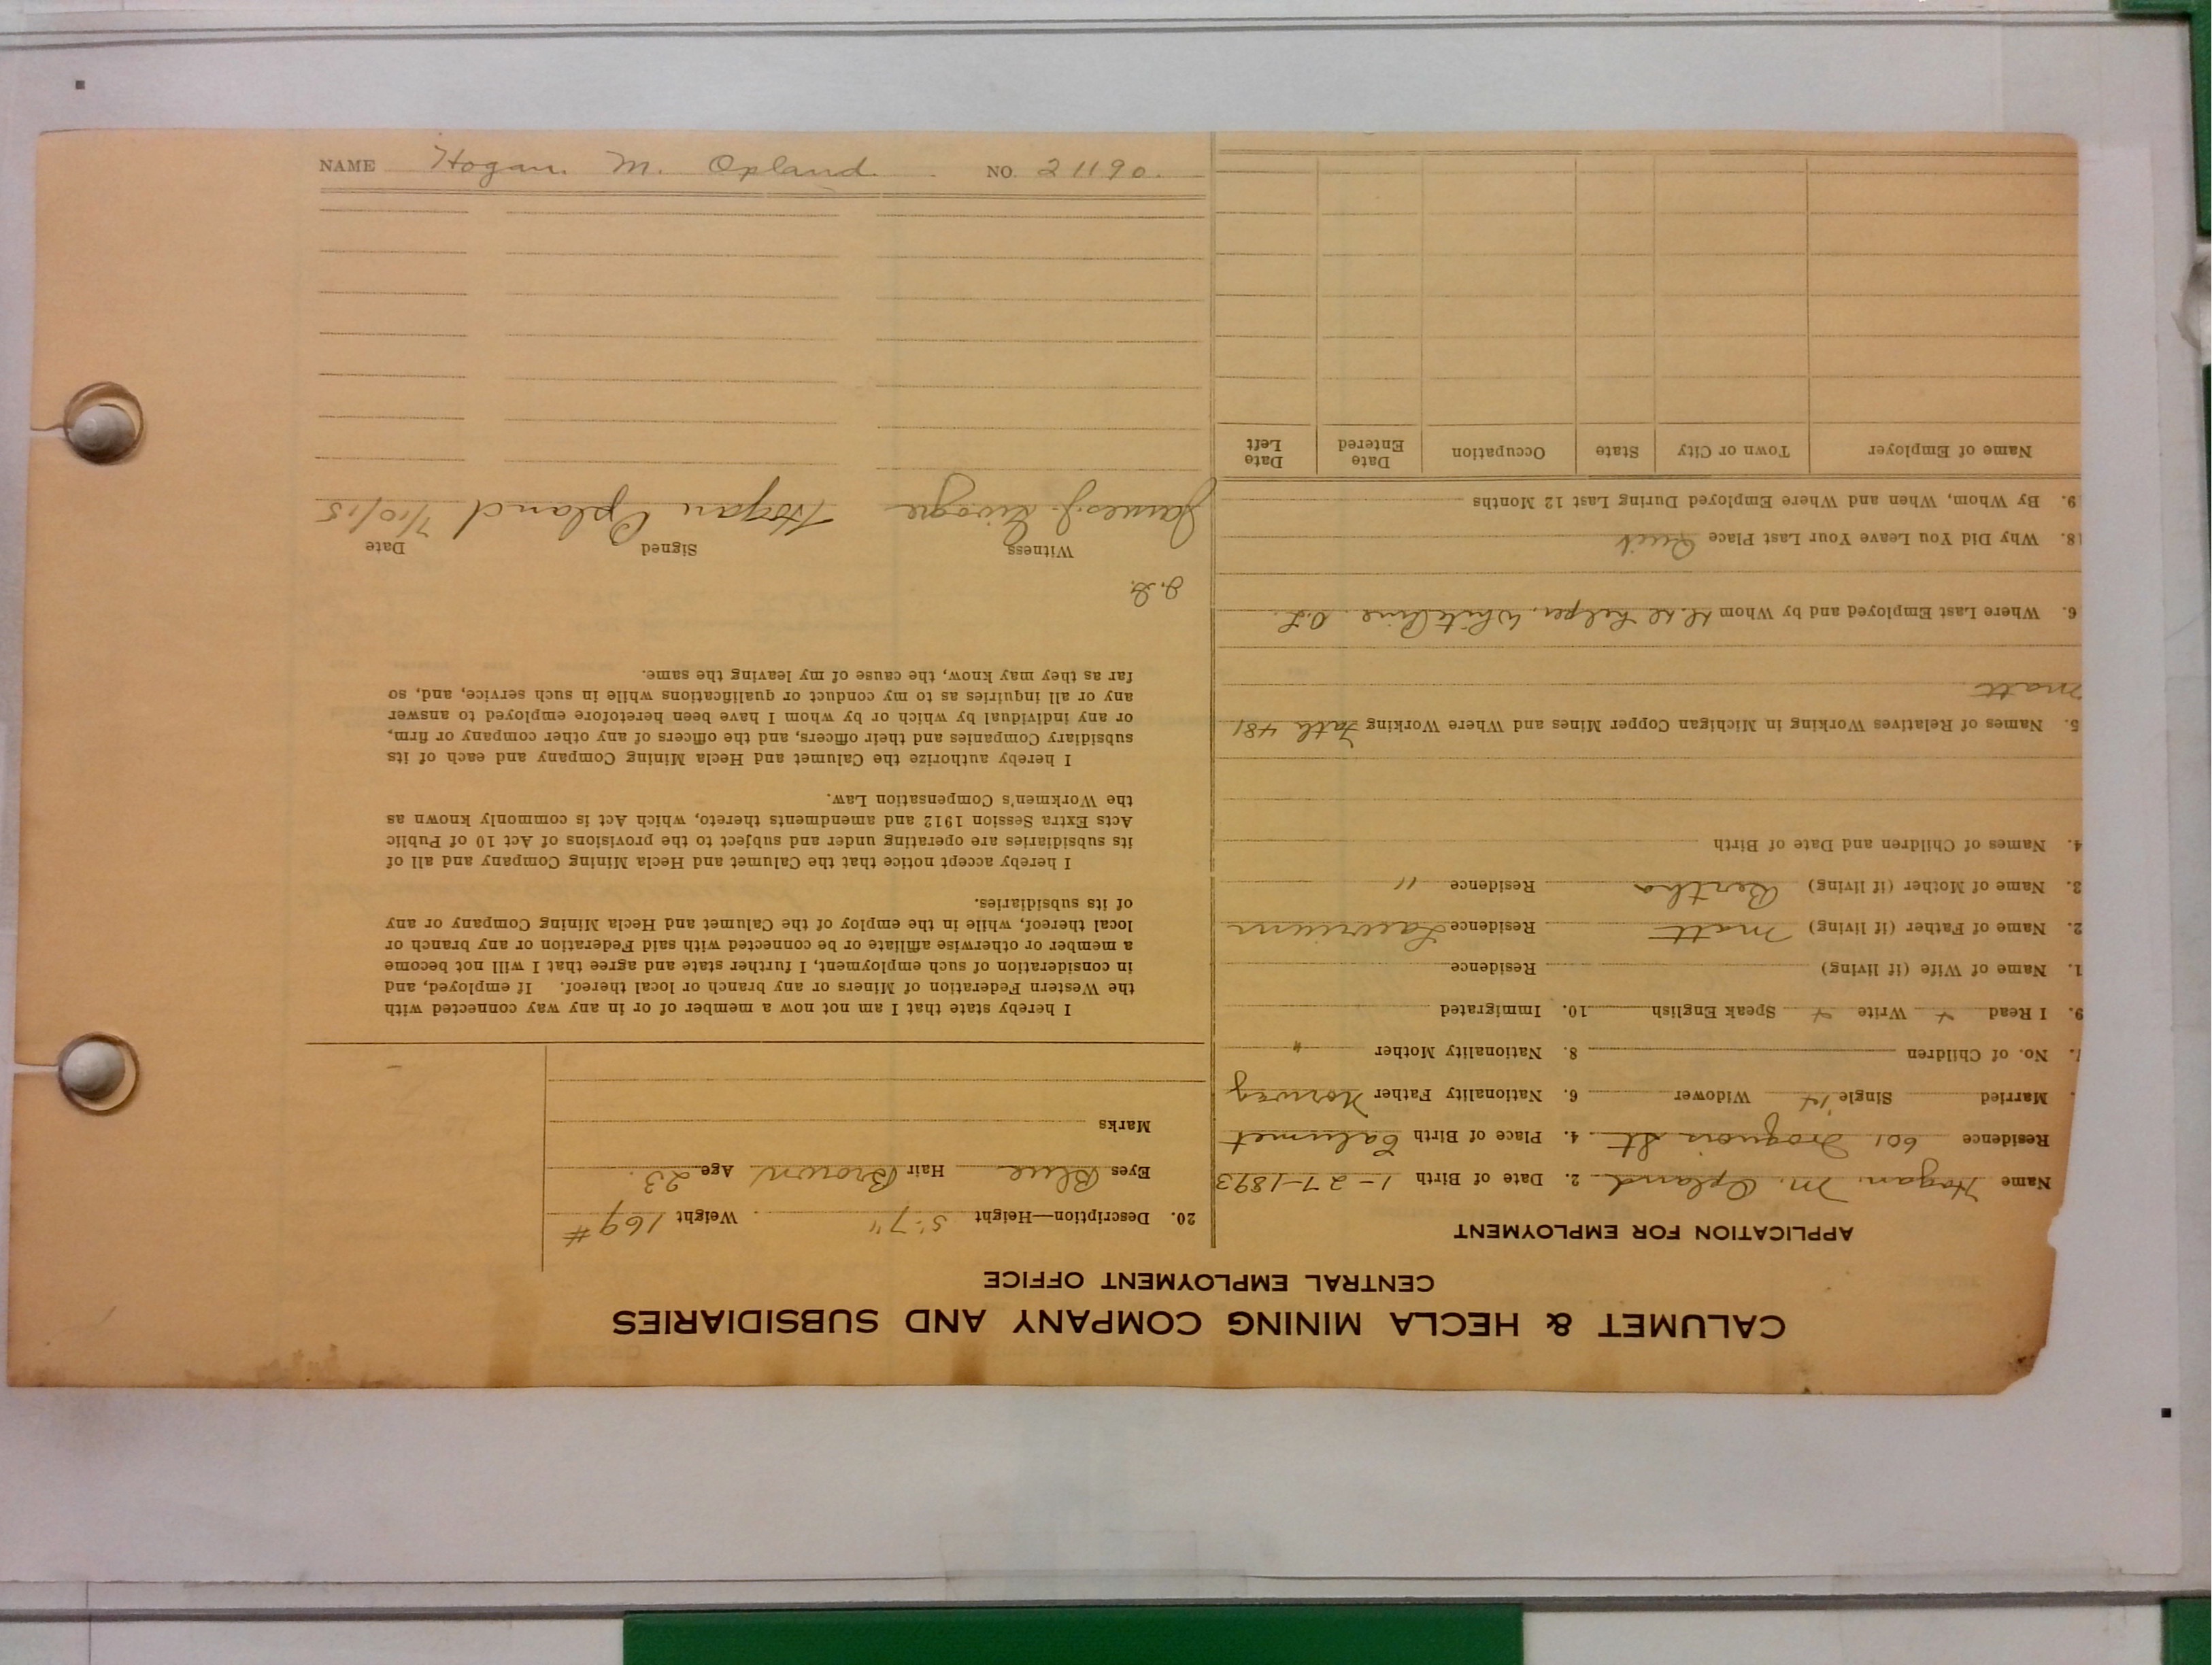 CALUMET & HECLA MINING COMPANY AND SUBSIDIARIES
CENTRAL EMPLOYMENT OFFICE
APPLICATION FOR EMPLOYMENT
Name Hogan. M. Opland 2. Date of Birth 1-27-1893
Residence 601 Iroquois St. 4. Place of Birth Calumet
Married Single Widower 6. Nationality Father Norway
No. of Children 8. Nationality Mother "
9. I Read Write Speak English 10. Immigrated
1. Name of Wife (if living) Residence
2. Name of Father (if living) Matt Residence Laurium
3. Name of Mother (if living) Bertha Residence "
4. Names of Children and Date of Birth
5. Names of Relatives Working in Michigan Copper Mines and Where Working Fath 481
Matt
6. Where Last Employed and by Whom helper, White Pine
18. Why Did You Leave Your Last Place Quit
9. By Whom, When and Where Employed During Last 12 Months
Name of Employer Town or City State Occupation Date Entered Date Left
20. Description—Height 5'-7" Weight 169 #
Eyes Blue Hair Brown Age 23.
Marks
I hereby state that I am not now a member of or in any way connected with
the Western Federation of Miners or any branch or local thereof. If employed, and
in consideration of such employment, I further state and agree that I will not become
a member or otherwise affiliate or be connected with said Federation or any branch or
local thereof, while in the employ of the Calumet and Hecla Mining Company or any
of its subsidiaries.
I hereby accept notice that the Calumet and Hecla Mining Company and all of
its subsidiaries are operating under and subject to the provisions of Act 10 of Public
Acts Extra Session 1912 and amendments thereto, which Act is commonly known as
the Workmen's Compensation Law.
I hereby authorize the Calumet and Hecla Mining Company and each of its
subsidiary Companies and their officers, and the officers of any other company or firm,
or any individual by which or by whom I have been heretofore employed to answer
any or all inquiries as to my conduct or qualifications while in such service, and, so
far as they may know, the cause of my leaving the same.
Witness Signed Date
James J. Hogan Opland 7/10/15
NAME Hogan. M. Opland. NO. 21190.